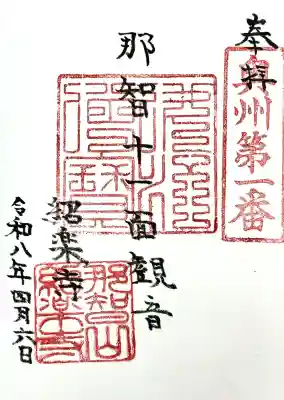 奉拝
奥州第一番
那智十一面観音
紹楽寺
令和八年四月六日
那智山
紹楽寺